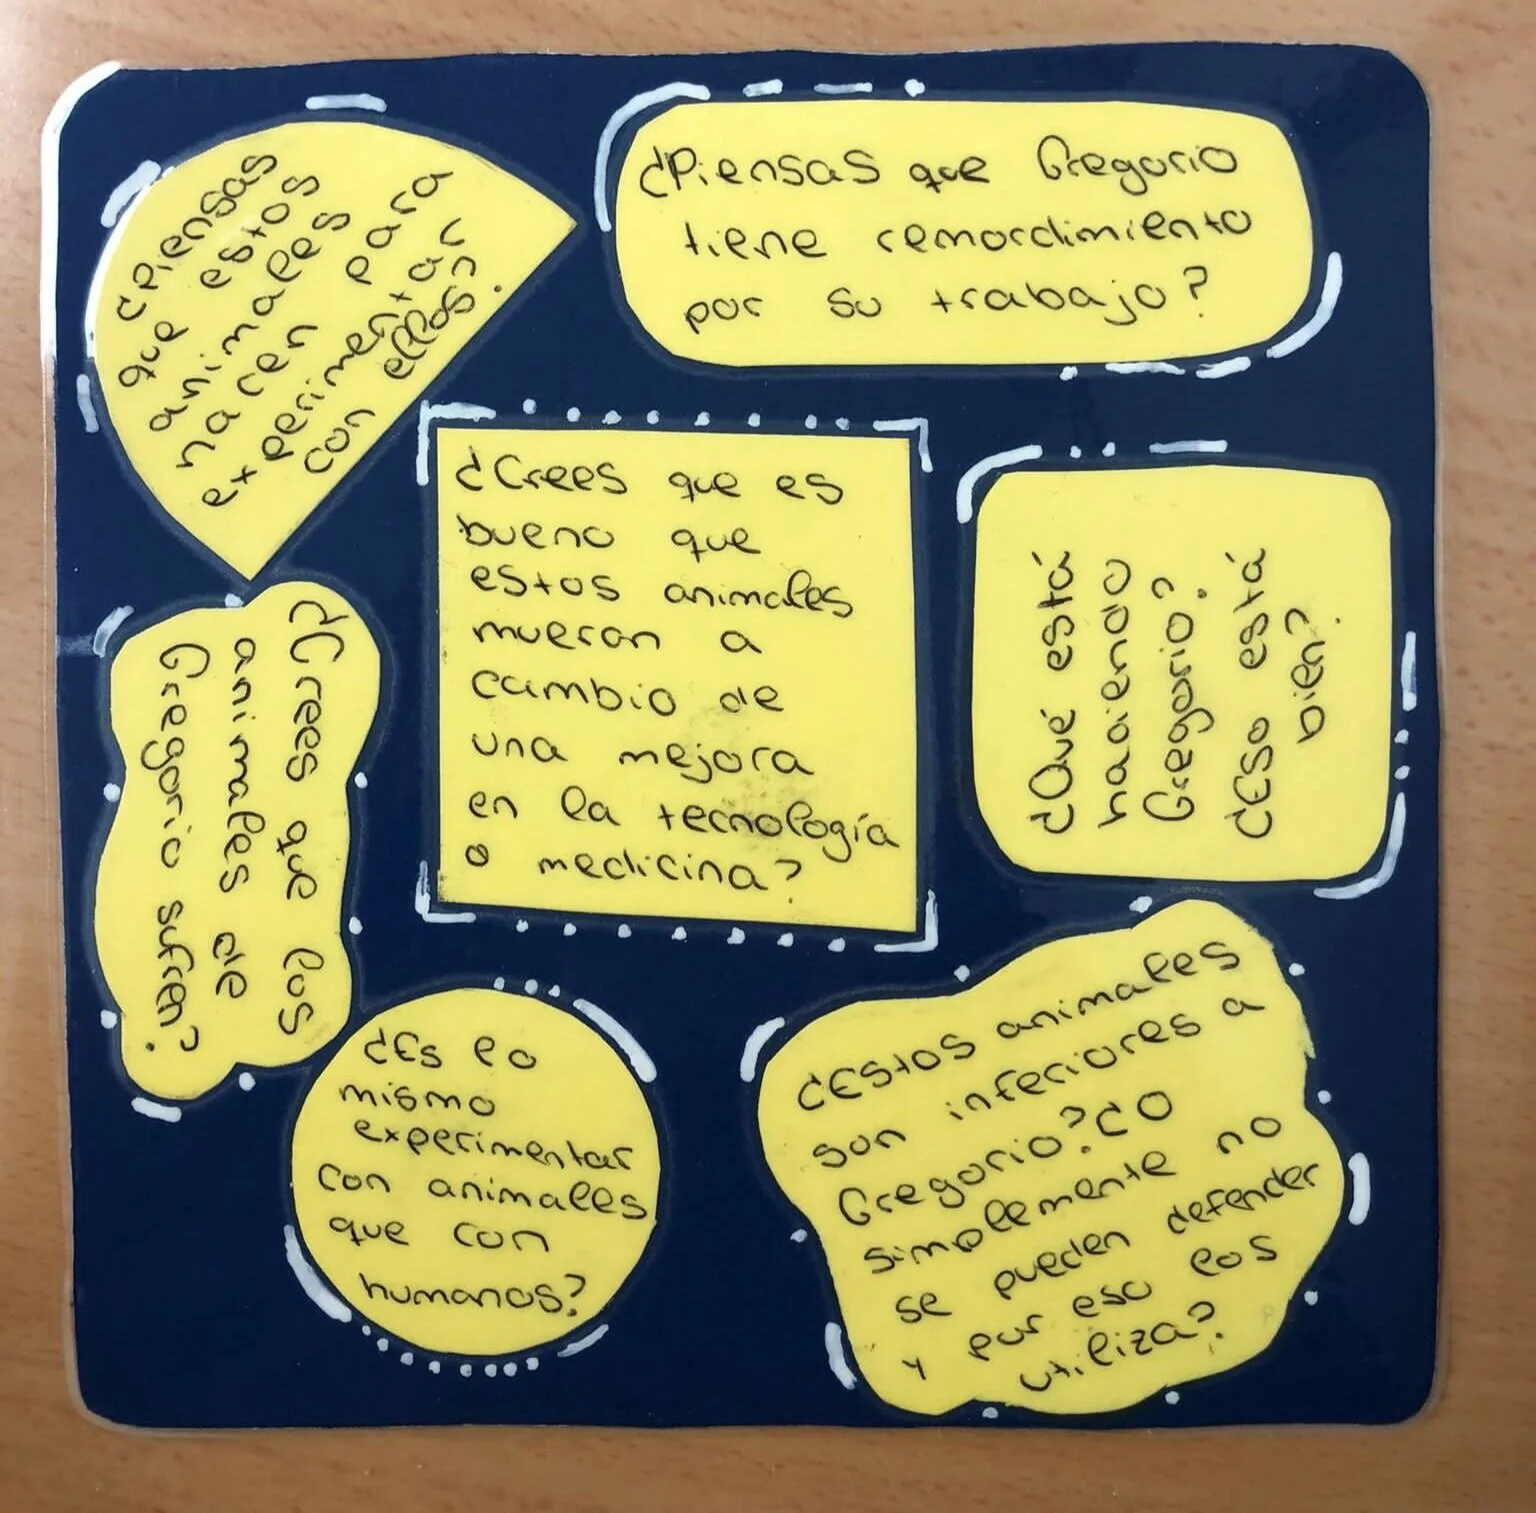 ¿Piensas
que estos
animales
nacen para
experimentar
con ellos?
¿Piensas que Gregorio
tiene remordimiento
por su trabajo?
¿Crees que es
bueno que
estos animales
mueran a
cambio de
una mejora
en la tecnología
o medicina?
¿Qué está
haciendo
Gregorio?
¿Eso está
bien?
¿Crees que los
animales de
Gregorio sufren?
¿Es lo
mismo
experimentar
con animales
que con
humanos?
¿Estos animales
son inferiores a
Gregorio? ¿O
simplemente no
se pueden defender
y por eso los
utiliza?